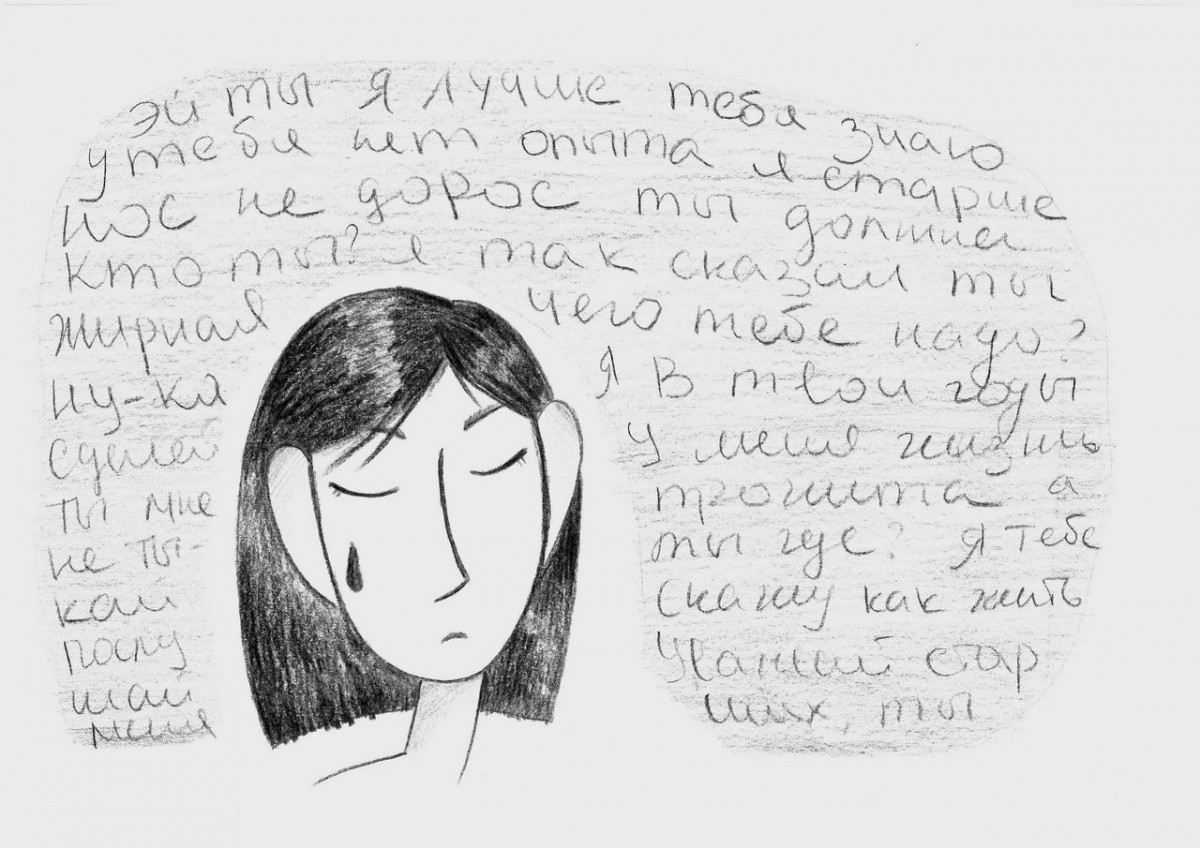 эй ты я лучше тебя знаю
у тебя нет опыта я старше
нос не дорос ты должна
кто ты? я так сказал ты
жирная чего тебе надо?
ну-ка я в твои годы
сделай у меня жизнь
ты мне прожита а
не ты- ты где? я тебе
кай скажу как жить
послу уважай стар
шай ших, ты
меня